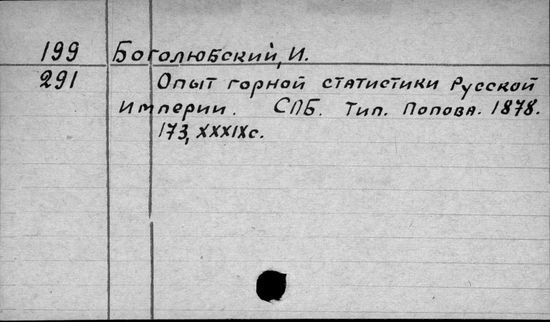 199 Боголюбский, И.
291 Опыт горной статистики Русской
Империи. СПБ. Тип. Попова. 1878.
173, XXXIXс.